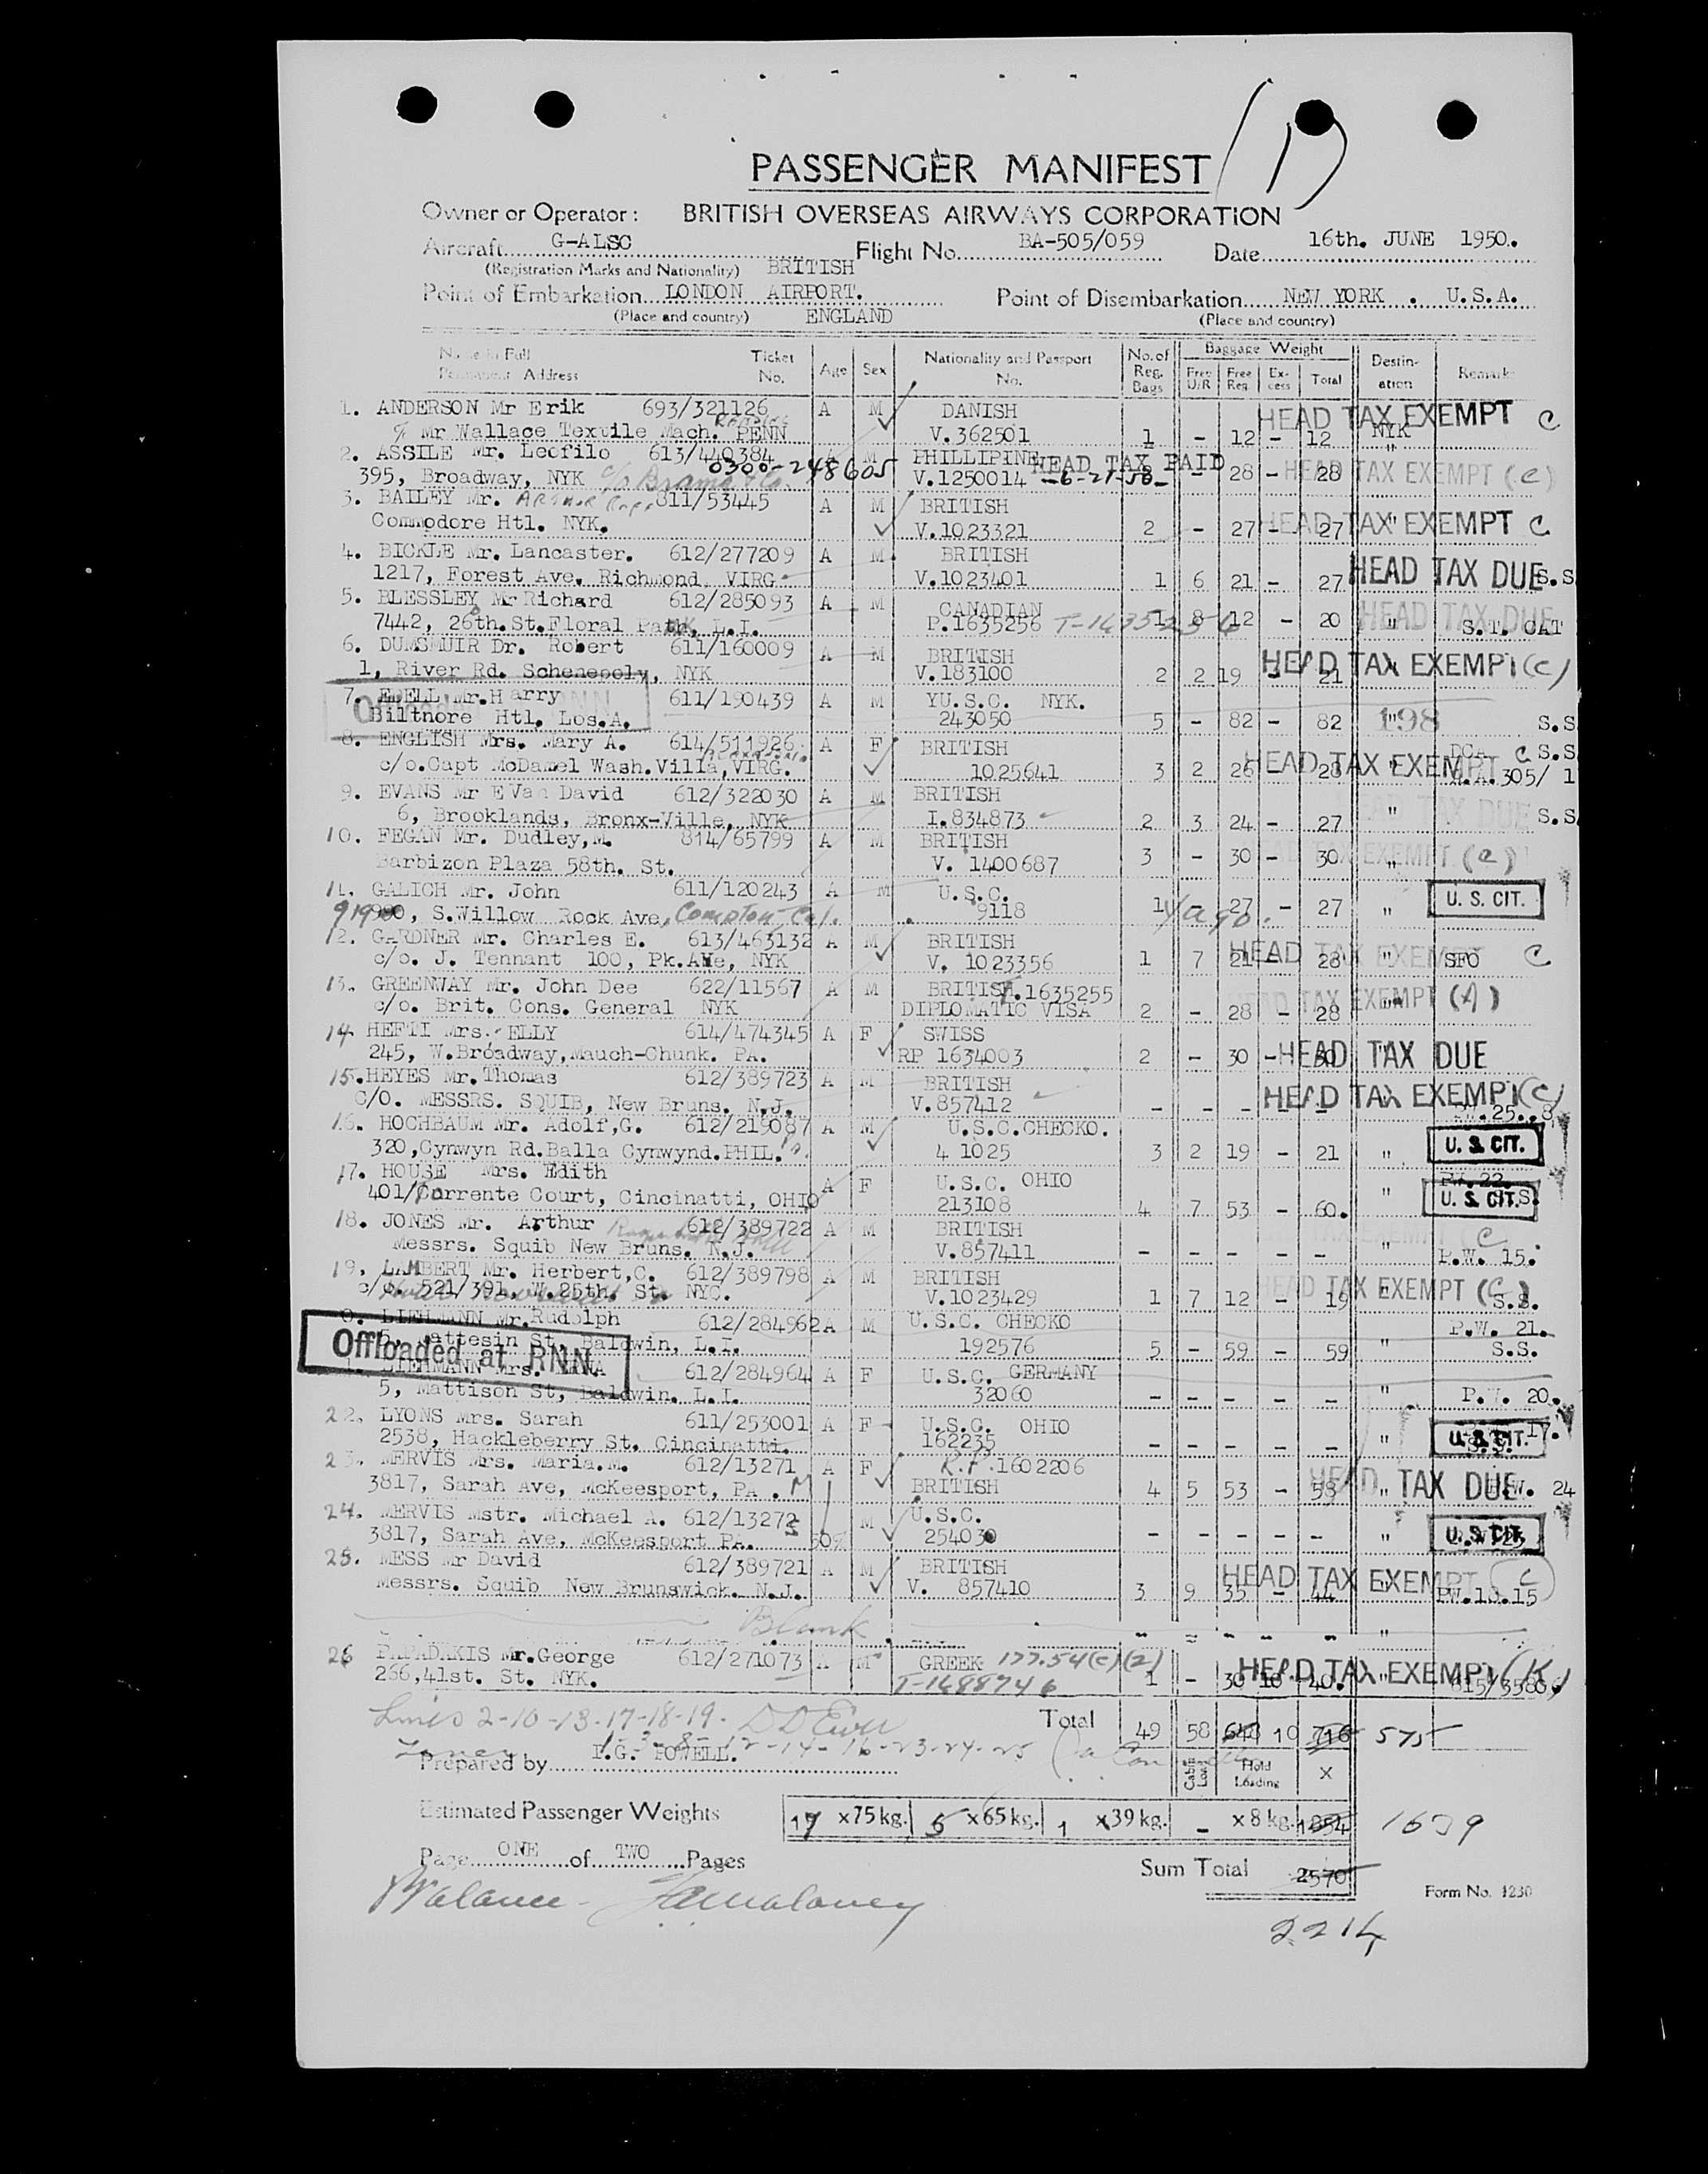 PASSENGER MANIFEST
Owner or Operator: BRITISH OVERSEAS AIRWAYS CORPORATION
Aircraft G-ALSC Flight No. BA-505/059 Date 16th. JUNE 1950.
(Registration Marks and Nationality) BRITISH
Point of Embarkation LONDON AIRPORT. Point of Disembarkation NEW YORK . U.S.A.
(Place and country) ENGLAND (Place and country)
Name in Full Ticket Age Sex Nationality and Passport No. of Baggage Weight Destin- Remarks
Permanent Address No. No. Reg. Bags Free U/R Free Reg. Ex-cess Total ation
1. ANDERSON Mr Erik 693/321126 A M DANISH HEAD TAX EXEMPT C
Mr Wallace Textile Mach. PENN V.362501 1 - 12 - 12 NYK
2. ASSILE Mr. Leofilo 613/440384 M PHILLIPINE HEAD TAX PAID "
395, Broadway, NYK 0300-248605 V.1250014 -6-21-50- - 28 - 28 HEAD TAX EXEMPT (C)
3. BAILEY Mr. 811/53445 A M BRITISH
Commodore Htl. NYK. V.1023321 2 - 27 - 27 " HEAD TAX EXEMPT C
4. BICKLE Mr. Lancaster. 612/277209 A M BRITISH
1217, Forest Ave. Richmond VIRG. V.1023401 1 6 21 - 27 HEAD TAX DUE S.S
5. BLESSLEY Mr Richard 612/285093 A M CANADIAN
7442, 26th.St.Floral Park, L.I. P.1635256 T-1635256 1 8 12 - 20 " HEAD TAX DUE S.T. CAT
6. DUMSMUIR Dr. Robert 611/160009 A M BRITISH
1, River Rd. Schenepoly, NYK V.183100 2 2 19 - 21 HEAD TAX EXEMPT (C)
7. EDELL Mr.Harry 611/190439 A M YU.S.C. NYK.
Biltnore Htl. Los.A. 243050 5 - 82 - 82 " 198 S.S
8. ENGLISH Mrs. Mary A. 614/511926 A F BRITISH DCA C S.S
c/o.Capt McDamel Wash.Villa, VIRG. 1025641 3 2 26 28 " HEAD TAX EXEMPT A.A.305/ 1
9. EVANS Mr EVan David 612/322030 A M BRITISH
6, Brooklands, Bronx-Ville, NYK I.834873 2 3 24 - 27 " HEAD TAX DUE S.S
10. FEGAN Mr. Dudley,M. 814/65799 A M BRITISH
Barbizon Plaza 58th. St. V. 1400687 3 - 30 - 30 " HEAD TAX EXEMPT (C)
11. GALICH Mr. John 611/120243 A M U.S.C. U. S. CIT.
919, S.Willow Rock Ave, Compton Cal. 9118 1 - 27 - 27 "
12. GARDNER Mr. Charles E. 613/463132 A M BRITISH
c/o. J. Tennant 100, Pk.AVe, NYK V. 1023356 1 7 21 - 28 " HEAD TAX EXEMPT SFO C
13. GREENWAY Mr. John Dee 622/11567 A M BRITISH T.1635255
c/o. Brit. Cons. General NYK DIPLOMATIC VISA 2 - 28 - 28 " HEAD TAX EXEMPT (A)
14 HEFTI Mrs. ELLY 614/474345 A F SWISS
245, W.Broadway,Mauch-Chunk. PA. RP 1634003 2 - 30 - 30 " HEAD TAX DUE
15. HEYES Mr.Thomas 612/389723 A M BRITISH
C/O. MESSRS. SQUIB, New Bruns. N.J. V.857412 - - - - " HEAD TAX EXEMPT (C)
16. HOCHBAUM Mr. Adolf,G. 612/219087 A M U.S.C.CHECKO.
320,Cynwyn Rd.Balla Cynwynd.PHIL. 4 1025 3 2 19 - 21 " U. S. CIT.
17. HOUSE Mrs. Edith A F U.S.C. OHIO P.W.22.
401/Corrente Court, Cincinatti, OHIO 213108 4 7 53 - 60. " U. S. CIT. S.S.
18. JONES Mr. Arthur 612/389722 A M BRITISH C
Messrs. Squib New Bruns. N.J. V.857411 - - - - - " P.W. 15.
19. LAMBERT Mr. Herbert,C. 612/389798 A M BRITISH
c/o. 521/391, W.25th. St. NYC. V.1023429 1 7 12 - 19 " HEAD TAX EXEMPT (C) S.S.
0. LIEHMANN Mr.Rudolph 612/284962 A M U.S.C. CHECKO P.W. 21.
5, Mattesin St, Baldwin, L.I. 192576 5 - 59 - 59 " S.S.
Offloaded at RNN
1. LIEHMANN Mrs. LINA 612/284964 A F U.S.C. GERMANY
5, Mattison St, Baldwin. L.I. 32060 - - - - - " P.W. 20.
22. LYONS Mrs. Sarah 611/253001 A F U.S.C. OHIO 17.
2538, Hackleberry St. Cincinatti. 162235 - - - - - " U. S. CIT.
23. MERVIS Mrs. Maria.M. 612/13271 A F R.P.1602206
3817, Sarah Ave, McKeesport, PA. BRITISH 4 5 53 - 58 " HEAD TAX DUE P.W. 24
24. MERVIS Mstr. Michael A. 612/13272 M U.S.C.
3817, Sarah Ave, McKeesport PA. 50% 254030 - - - - - " U. S. CIT.
25. MESS Mr David 612/389721 A M BRITISH
Messrs. Squib New Brunswick. N.J. V. 857410 3 9 35 - 44 " HEAD TAX EXEMPT C PW.10.15
Blank - - - - - "
26 PAPADAKIS Mr.George 612/271073 A M GREEK 177.54(c)(2)
266,41st. St. NYK. T-1688746 1 - 30 10 40. " HEAD TAX EXEMPT (K)
Lines 2-10-13-17-18-19.
Total 49 58 648 10 716 575
1-3-8-12-14-16-23-24-25
Prepared by F.G. POWELL. Cabin Load Hold Loading X
Estimated Passenger Weights 17 x75kg. 5 x65kg. 1 x39kg. - x8kg. 1854 1639
Page ONE of TWO Pages Sum Total 2570
Balance
Form No. 1230
2214